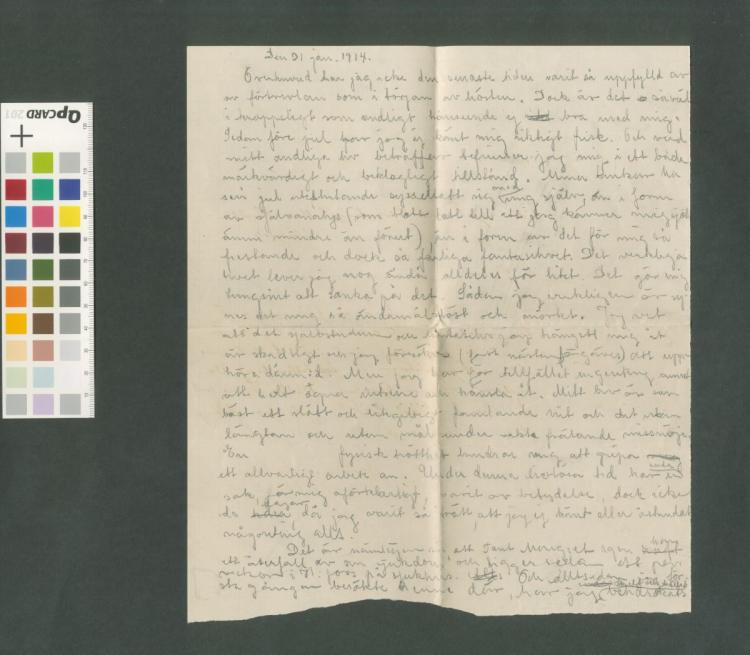 Den 31 jan. 1914.
har jag icke den senaste tiden varit så uppfylld av
av förtvivlan som i början av hösten. Dock är det
i kroppsligt som andligt hänseende ej bra med mig.
Sedan före jul har jag ej känt mig riktigt frisk. Och vad
mitt andliga liv beträffar befinner jag mig i ett både
märkvärdigt och beklagligt tillstånd. Mina tankar ha
sen jul uteslutande sysselsatt sig med mig själv, än i form
av självanalys (som dock lett till att jag känner mig själv
ännu mindre än förut) än i form av det för mig så
frestande och dock så farliga fantasilivet. Det verkliga
livet lever jag nog ändå alldeles för litet. Det gör mig
tungsint att tänka på det. Sådan jag verkligen är sy-
nes det mig så ändamålslöst och mörkt. Jag vet
att det självstudium och jag hängett mig åt
är skadligt och jag försöker (fast nästan förgäves) att upp-
höra därmed. Men jag har för tillfället ingenting annat
att helt ägna intresse och hänsikt åt. Mitt liv är som
bäst ett slätt och likgiltigt famlande väl och det utan
längtan och utan mål under missnöje.
En fysisk trötthet hindrar mig att gripa
ett allvarligt arbete an. Under denna tid har en
sak, för mig oförklarlig, varit av betydelse, dock icke
de dagar, då jag varit så trött, att jag ej känt eller åstundat
någonting alls.
Det är nämligen att Tant Margret igen
ett återfall av sin sjukdom och ligger sedan ett par
veckor i H:fors på sjukhus. Och alltsedan jag för
sta gången besökte henne där, har jag